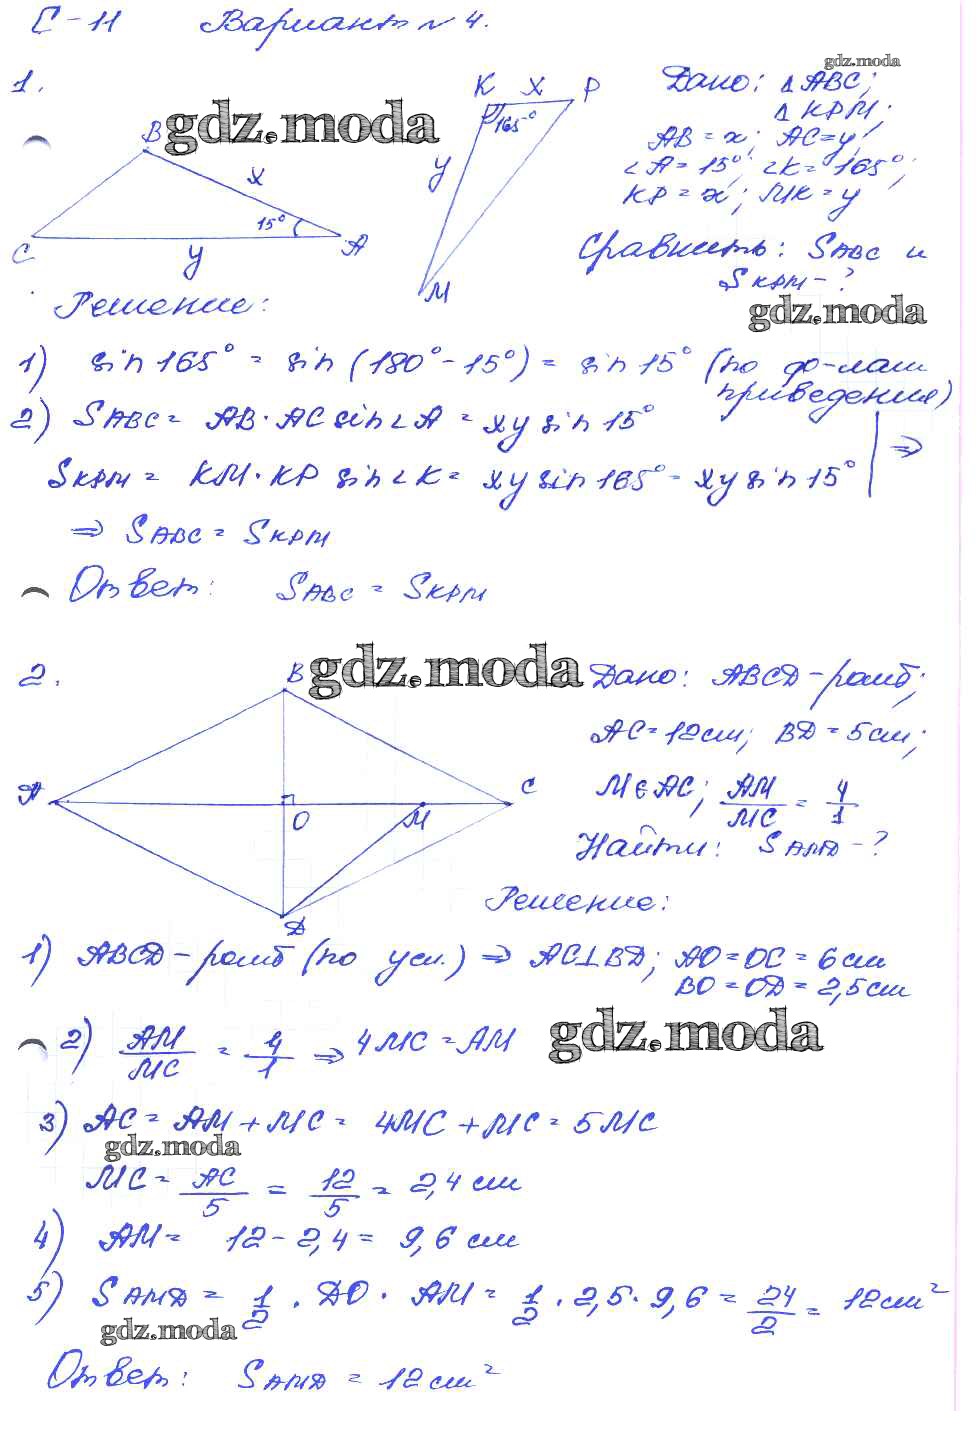 С-11 Вариант № 4.
1.
gdz.moda
gdz.moda
K X P
165°
B
X
y
15°
C
y
A
M
Дано: △ABC;
△KPM;
AB = x; AC = y;
∠A = 15°; ∠K = 165°;
KP = x; MK = y
Сравнить: SABC и
SKPM - ?
gdz.moda
Решение:
1) sin 165° = sin (180° - 15°) = sin 15° (по ф-лам
приведения)
2) SABC = AB · AC sin ∠A = xy sin 15°
SKPM = KM · KP sin ∠K = xy sin 165° = xy sin 15° ⇒
⇒ SABC = SKPM
Ответ: SABC = SKPM
2.
gdz.moda
B
A
C
O
M
D
Дано: ABCD - ромб;
AC = 12 см; BD = 5 см;
M ∈ AC; AM/MC = 4/1
Найти: SAMD - ?
Решение:
1) ABCD - ромб (по усл.) ⇒ AC ⊥ BD; AO = OC = 6 см
BO = OD = 2,5 см
gdz.moda
2) AM/MC = 4/1 ⇒ 4MC = AM
3) AC = AM + MC = 4MC + MC = 5MC
gdz.moda
MC = AC/5 = 12/5 = 2,4 см
4) AM = 12 - 2,4 = 9,6 см
5) SAMD = 1/2 · DO · AM = 1/2 · 2,5 · 9,6 = 24/2 = 12 см²
gdz.moda
Ответ: SAMD = 12 см²